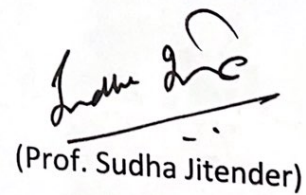 (Prof. Sudha Jitender)